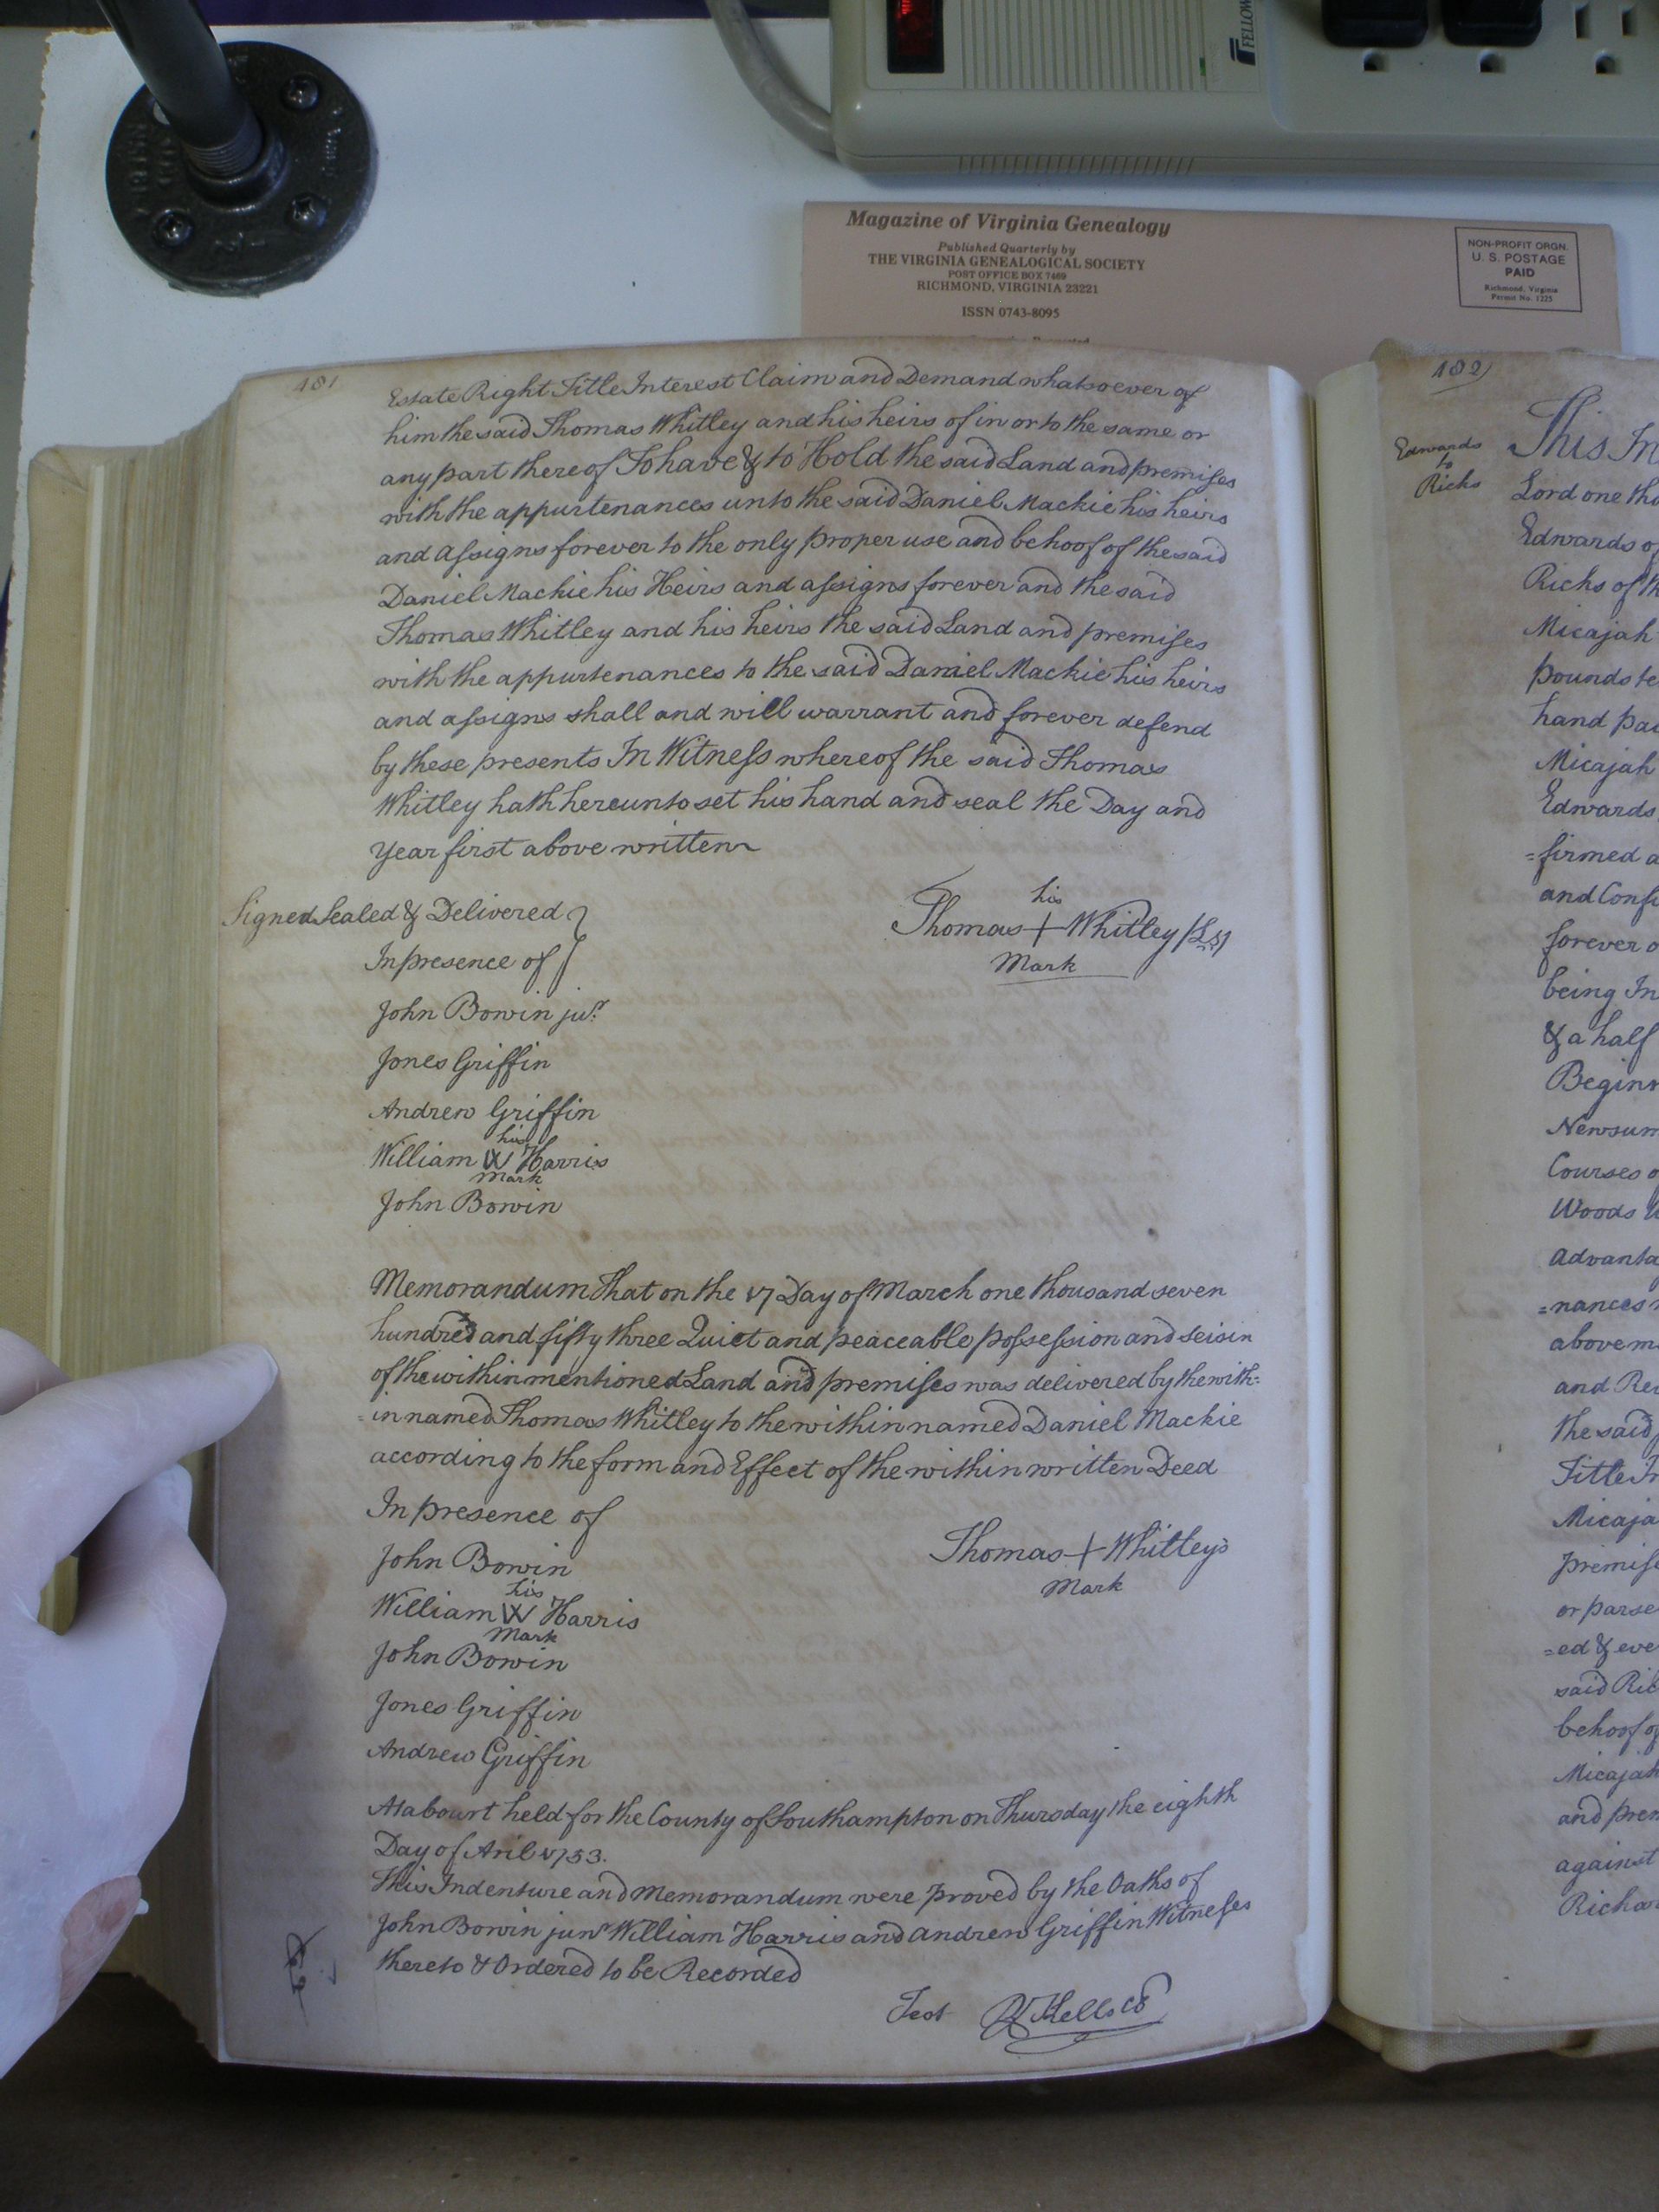 FELLOW
Magazine of Virginia Genealogy
Published Quarterly by
THE VIRGINIA GENEALOGICAL SOCIETY
POST OFFICE BOX 7469
RICHMOND, VIRGINIA 23221
ISSN 0743-8095
NON-PROFIT ORGN.
U. S. POSTAGE
PAID
Richmond, Virginia
Permit No. 1225
181
Estate Right Title Interest Claim and Demand whatsoever of
him the said Thomas Whitley and his heirs of in or to the same or
any part thereof To have & to Hold the said Land and premises
with the appurtenances unto the said Daniel Mackie his heirs
and assigns forever to the only proper use and behoof of the said
Daniel Mackie his Heirs and assigns forever and the said
Thomas Whitley and his heirs the said Land and premises
with the appurtenances to the said Daniel Mackie his heirs
and assigns shall and will warrant and forever defend
by these presents In Witness whereof the said Thomas
Whitley hath hereunto set his hand and seal the Day and
Year first above written
Signed Sealed & Delivered
In presence of
his
Thomas + Whitley (LS)
Mark
John Bowin junr
Jones Griffin
Andrew Griffin
his
William W Harris
Mark
John Bowin
Memorandum That on the 17 Day of March one thousand seven
hundred and fifty three Quiet and peaceable possession and seisin
of the within mentioned Land and premises was delivered by the with=
=in named Thomas Whitley to the within named Daniel Mackie
according to the form and Effect of the within written Deed
In presence of
John Bowin
Thomas + Whitley's
Mark
his
William W Harris
Mark
John Bowin
Jones Griffin
Andrew Griffin
At a Court held for the County of Southampton on Thursday the eighth
Day of Aril 1753.
This Indenture and Memorandum were proved by the Oaths of
John Bowin junr William Harris and Andrew Griffin Witnesses
thereto & Ordered to be Recorded
Test R Kello CC
182
Edwards
to
Ricks
This In
Lord one tho
Edwards of
Ricks of th
Micajah
pounds te
hand pai
Micajah
Edwards
=firmed a
and Confi
forever o
being In
& a half
Beginn
Newsum
Courses o
Woods W
Advanta
=nances
above m
and Rev
the said
Title In
Micaja
premise
or parse
=ed & eve
said Ric
behoof of
Micajah
and prem
against
Richar